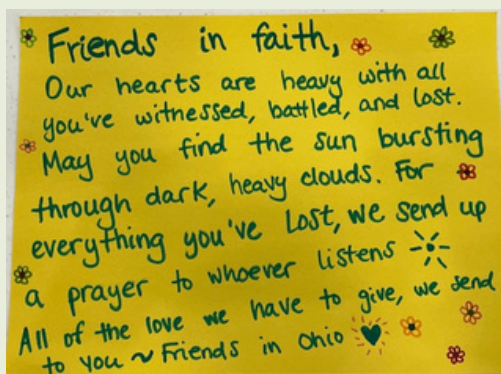 Friends in faith,
Our hearts are heavy with all
you've witnessed, battled, and lost.
May you find the sun bursting
through dark, heavy clouds. For
everything you've Lost, we send up
a prayer to whoever listens
All of the love we have to give, we send
to you ~ Friends in Ohio